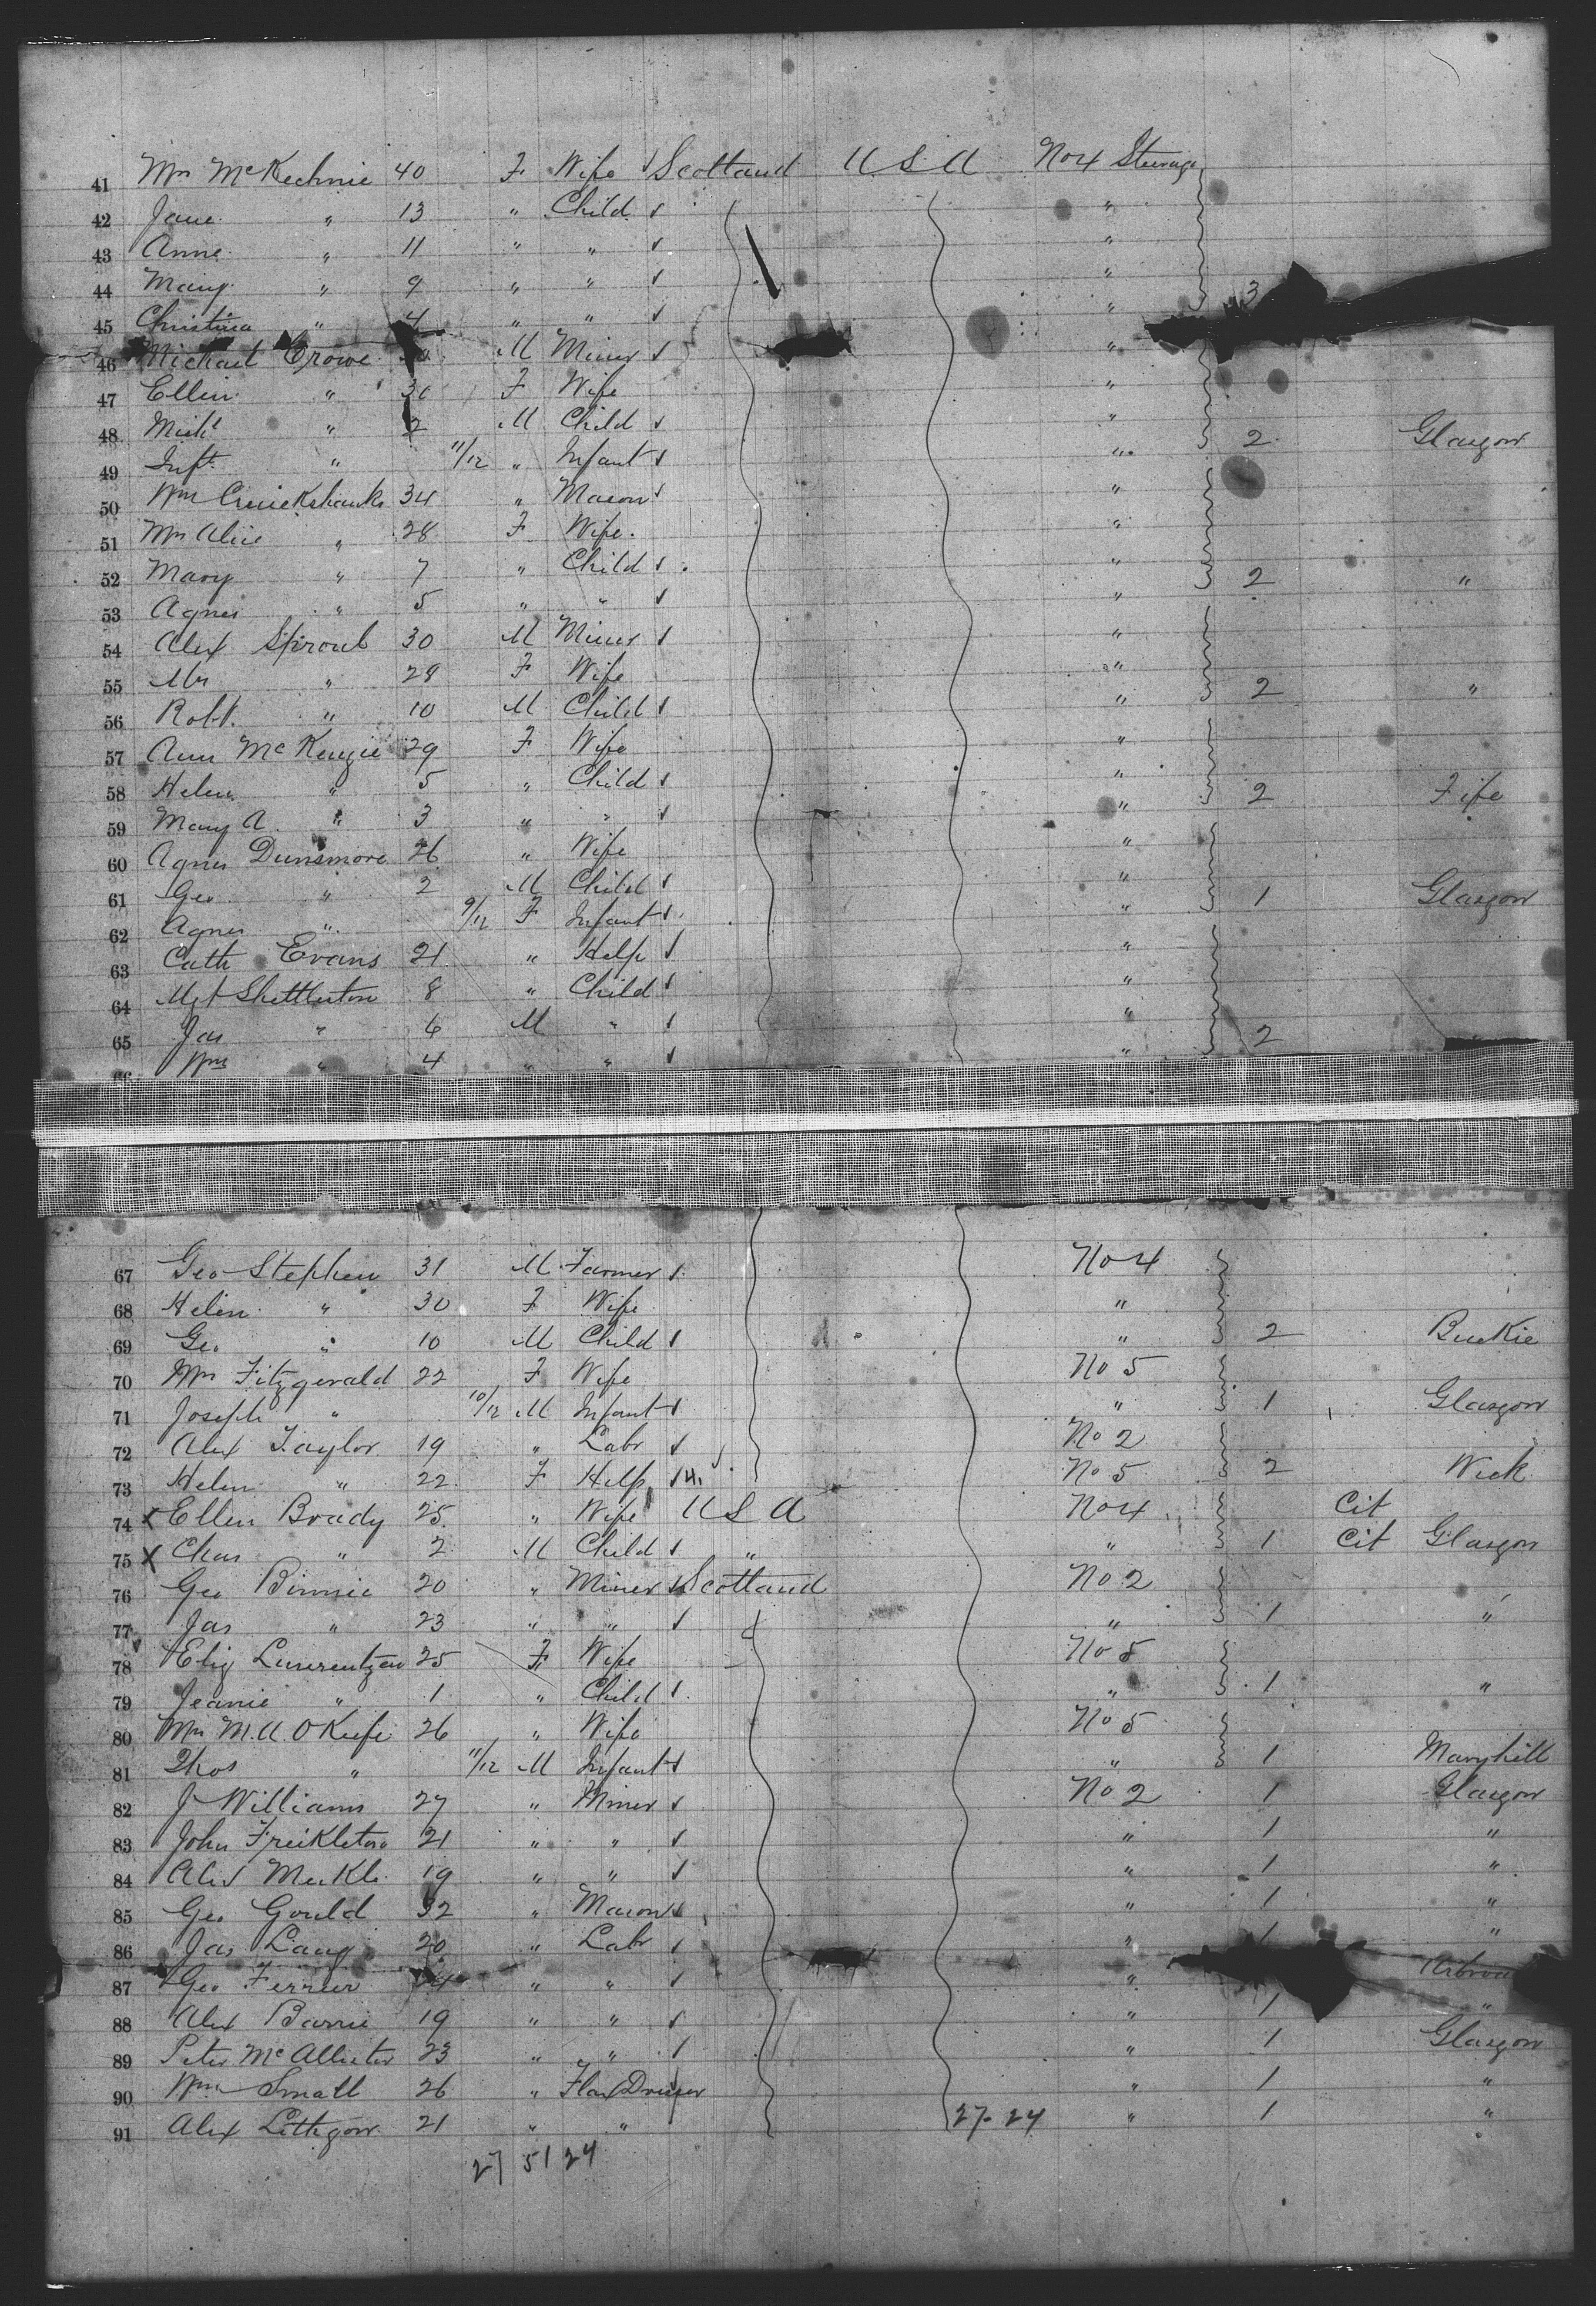 41 Mrs McKechnie 40 F Wife ✓ Scotland U S A No 4 Steerage
42 Jane " 13 " Child ✓ "
43 Anne " 11 " " ✓ "
44 Mary " 9 " " ✓ " 3
45 Christina " 4 " " ✓ "
46 Michael Crowe M Miner ✓ "
47 Ellen " 30 F Wife "
48 Michl " 2 M Child ✓ " 2 Glasgow
49 Inft " 11/12 " Infant ✓ "
50 Wm Cruickshanks 34 " Mason ✓ "
51 Mrs Alice " 28 F Wife "
52 Mary " 7 " Child ✓ " 2 "
53 Agnes " 5 " " ✓ "
54 Alex Sproul 30 M Miner ✓ "
55 Mrs " 28 F Wife " 2 "
56 Robt. " 10 M Child ✓ "
57 Ann McKenzie 29 F Wife "
58 Helen " 5 " Child ✓ " 2 Fife
59 Mary A. " 3 " " ✓ "
60 Agnes Dunsmore 26 " Wife "
61 Geo " 2 M Child ✓ " 1 Glasgow
62 Agnes " 9/12 F Infant ✓ "
63 Cath Evans 21 " Help ✓ "
64 Mgt Shettleston 8 " Child ✓ "
65 Jas " 6 M " ✓ " 2
66 Wm " 4 " " ✓ "
67 Geo Stephen 31 M Farmer ✓ No 4
68 Helen " 30 F Wife "
69 Geo " 10 M Child ✓ " 2 Buckie
70 Mrs Fitzgerald 22 F Wife No 5
71 Joseph " 10/12 M Infant ✓ " 1 Glasgow
72 Alex Taylor 19 " Labr ✓ No 2
73 Helen " 22 F Help ✓ No 5 2 Wick
74 x Ellen Brady 25 " Wife U S A No 4 Cit
75 x Chas " 2 M Child ✓ " " 1 Cit Glasgow
76 Geo Binnie 20 " Miner ✓ Scotland No 2
77 Jas " 23 " " ✓ " 1 "
78 Eliz Laurentzen 25 F Wife No 5
79 Jeanie " 1 " Child ✓ " 1 "
80 Mrs M.A. O Keefe 26 " Wife No 5
81 Thos " 11/12 M Infant ✓ " 1 Maryhill
82 J Williams 27 " Miner ✓ No 2 1 Glasgow
83 John Freikleton 21 " " ✓ " 1 "
84 Alex Meikle 19 " " ✓ " 1 "
85 Geo Gould 32 " Mason ✓ " 1 "
86 Jas Lang 20 " Labr ✓ " 1 "
87 Geo Ferrier " " ✓ "
88 Alex Barrie 19 " " ✓ " 1 "
89 Peter McAllister 23 " " ✓ " 1 Glasgow
90 Wm Small 26 " Flax Dresser " 1 "
91 Alex Lithgow 21 " " 27-24 " 1 "
27 51 24